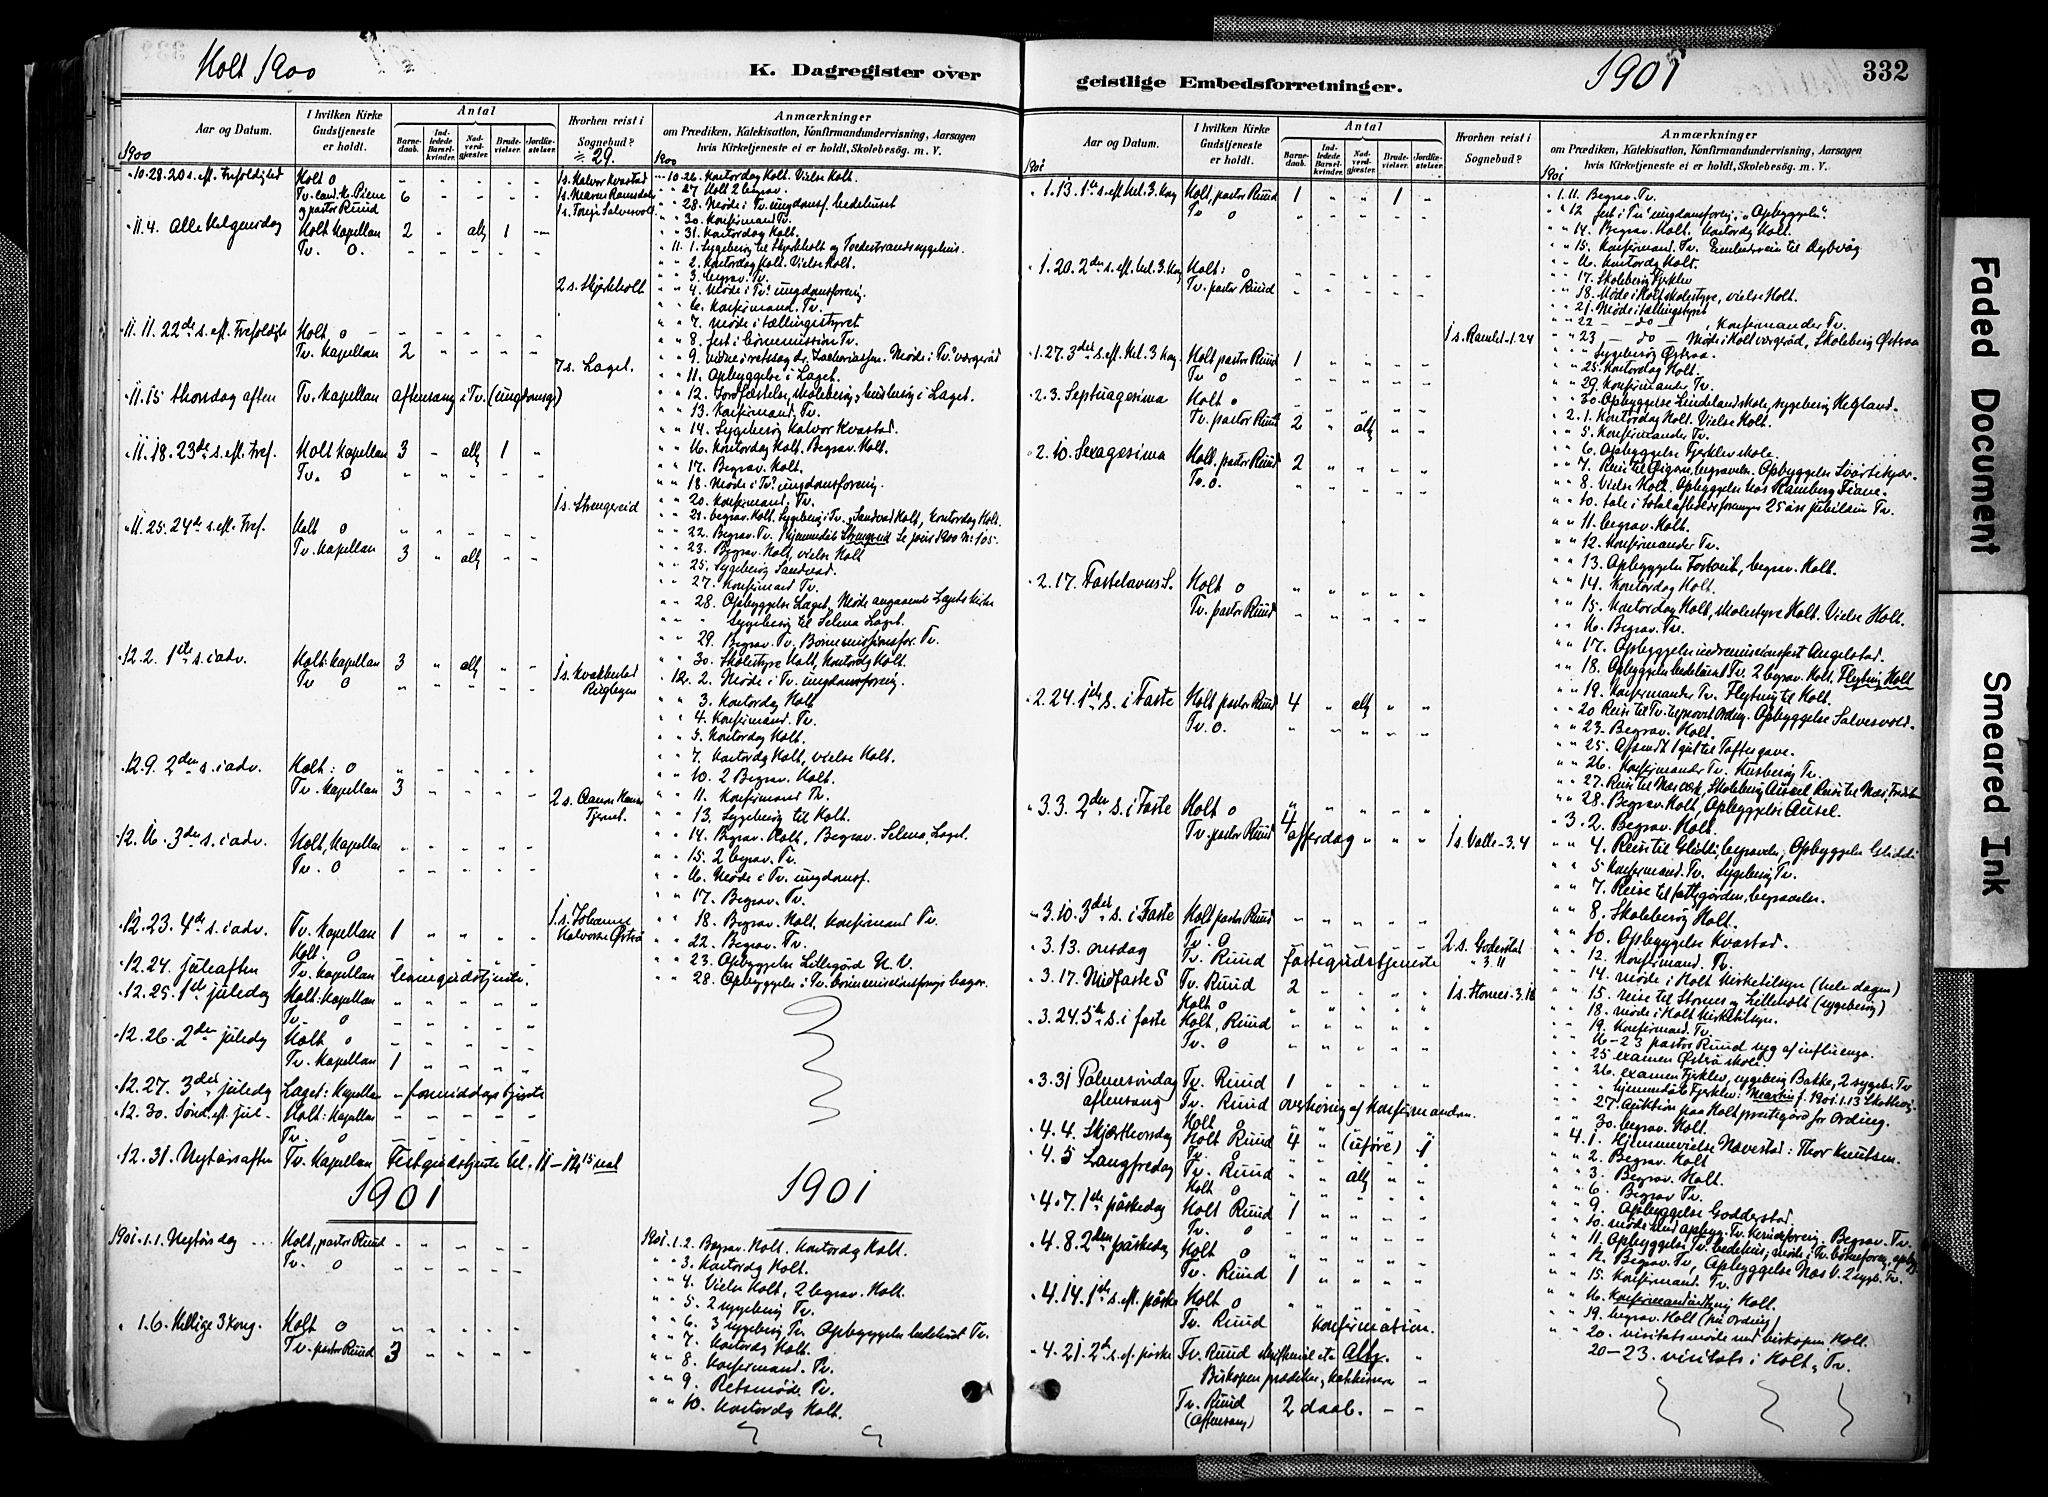 Holt 1900
K. Dagregister over
Antal
Aar og Datum.
I hvilken Kirke Gudstjeneste er holdt.
Barnedaab.
Indledede Barselkvinder.
Nadverdgjester.
Brudevielser.
Jordfæstelser.
Hvorhen reist i Sognebud?
29.
Anmærkninger
om Prædiken, Katekisation, Konfirmandundervisning, Aarsagen
hvis Kirketjeneste ei er holdt, Skolebesøg. m. V.
1900
10.28. 20 s. eft. Trefoldighed Holt 0
og pastor Ruud
11.4. Alle Helgensdag Holt Kapellan 2 " alt 1
Tv. 0.
2 s. Skjerkholt
11.11. 22de s. eft. Trefoldigh Holt 0
Tv. Kapellan 2
7 s. Laget.
11.15 thorsdag aften Tv. Kapellan aftensang i Tv. (ungdomsg.)
11.18. 23de s. eft. Tref. Holt Kapellan 3 - alt 1
Tv. 0
1 s. Strengereid
11.25. 24de s. eft. Tref. Holt 0
Tv. Kapellan 3 " alt
12.2. 1ste s. i adv. Holt Kapellan 3 " alt
Tv 0
12.9. 2den s. i adv. Holt: 0
Tv. Kapellan 3
12.16. 3die s. i adv. Holt, Kapellan
Tv. 0
12.23. 4de s. i adv. Tv. Kapellan 1
Holt, 0
12.24. juleaften Tv. Kapellan
12.25. 1ste juledag Holt: Kapellan
Tv. 0
12.26. 2den juledag Holt 0
Tv. Kapellan 1
12.27. 3die juledag Laget: Kapellan formiddagstjeneste
12.30. Sønd. eft. jul Holt: Kapellan
Tv. 0
12.31. Nytårsaften Tv. Kapellan Festgudstjeneste kl. 11-12 15 nat
1901
1901.1.1. Nytårsdag Holt, pastor Ruud
Tv. 0
1.6. Hellige 3 kong. Holt 0
Tv. pastor Ruud 3
10.26. Kontordag Holt. Vielse Holt.
" 27 Holt 2 begrav.
" 28. Møde i Tv. ungdomsf. bedehuset
" 30. Konfirmand Tv.
" 31. Kontordag Holt.
11. 1. Sygebesøg til Skjerkholt og Tvedestrands sygehus.
" 2. Kontordag Holt. Vielse Holt.
" 3. begrav. Tv.
" 4. Møde i Tv. ungdomsforenig.
" 6. Konfirmand. Tv.
" 7. møde i tællingsstyret
" 8. fest i børnemission Tv.
" 11. Opbyggelse i Laget.
" 12. Jordfæstelse, skolebesøg, husbesøg i Laget.
" 13. Konfirmand. Tv.
" 14. Sygebesøg Halvor Kvastad.
" 16. Kontordag Holt. Begrav. Holt.
" 17. Begrav. Holt.
" 18. Møde i Tv. ungdomsforening.
" 20. Konfirmand. Tv.
" 21. begrav. Holt. Sygebesøg i Tv., Sandvad Holt, kontordag Holt.
" 22. Begrav. Tv. Hjemmedåb Strengereid
" 23. Begrav. Holt, vielse Holt
" 25. Sygebesøg Sandvad.
" 27. Konfirmand Tv.
" 28. Opbyggelse Laget, Møde angaaende Lagets kirke
" " Sygebesøg til Selma Laget.
" 29. Begrav. Tv. Børnemissionsfor. Tv.
" 30. Skolestyre Holt, Kontordag Holt.
12. 2. Møde i Tv. ungdomsforenig.
" 3. Kontordag Holt
" 4. Konfirmand. Tv.
" 5. Kontordag Holt.
" 7. Kontordag Holt, vielse Holt.
" 10. 2 Begrav. Holt.
" 11. Konfirmand Tv.
" 13. Sygebesøg til Holt.
" 14. Begrav. Holt, Begrav. Selma, Laget.
" 15. 2 begrav. Tv.
" 16. Møde i Tv. ungdomsf.
" 17. Begrav. Tv.
" 18. Begrav. Holt, konfirmand Tv.
" 22. Begrav. Tv.
" 28. Opbyggelse i Tv.
1901
1901.1.2. Begrav. Holt. Kontordag Holt.
" 3. Kontordag Holt.
" 4. Vielse Holt, 2 begrav. Holt.
" 5. 2 sygebesøg Tv.
" 6. 3 sygebesøg Tv. Opbyggelse bedehuset Tv.
" 7. Kontordag Holt.
" 8. Konfirmand. Tv.
" 9. Retsmøde Tv.
" 10. Kontordag Holt.
geistlige Embedsforretninger.
1901
332
Aar og Datum.
I hvilken Kirke Gudstjeneste er holdt.
Antal
Barnedaab.
Indledede Barselkvinder.
Nadverdgjester.
Brudevielser.
Jordfæstelser.
Hvorhen reist i Sognebud?
Anmærkninger
om Prædiken, Katekisation, Konfirmandundervisning, Aarsagen
hvis Kirketjeneste ei er holdt, Skolebesøg. m. V.
1901
1.13. 1ste s. eft. hel. 3 kong Holt, pastor Ruud 1 " " 1
Tv 0
1.20. 2den s. eft. hel. 3 kong Holt: 0
Tv. pastor Ruud
1 s. Ramlet 1.24
1.27. 3die s. eft. hel. 3 kong Holt pastor Ruud 1
Tv 0
2.3. Septuagesima Holt 0
Tv. pastor Ruud 2 " alt
2.10. Sexagesima Holt. pastor Ruud 2
Tv. 0.
2.17. Fastelavns S. Holt 0
Tv. pastor Ruud
2.24. 1ste s. i Faste Holt pastor Ruud 4 " alt
Tv. 0.
3.3. 2den s. i Faste Holt 0
Tv. pastor Ruud 4 offerdag
1 s. Valle 3.4
3.10. 3die s. i Faste Holt pastor Ruud
Tv. 0
3.13. onsdag Tv. Ruud fastegudstjeneste
2 s. Goderstad 3.11
3.17. Midfaste S Tv. Ruud 2
Holt 0
3.24. 5te s. i faste Holt, Ruud
Tv. 0
3.31 Palmesøndag Tv. Ruud 1
aftensang Tv. Ruud overhøring af konfirmander.
Holt 0
4.4. Skjærthorsdag Holt Ruud 4 " (uføre) " 1
Tv. 0
4.5 Langfredag Tv. Ruud " " alt
Holt 0
4.7. 1ste påskedag Holt Ruud 1
Tv. 0
4.8. 2den påskedag Holt 0
Tv. Ruud 1
4.14. 1ste s. eft. påske Holt 0
Tv. Ruud Konfirmation.
4.21. 2den s. ef. påske Tv. Ruud skriftemål etc Altg.
Biskopen prædiker,
Tv. Ruud 2 daab.
(Aftensang)
1.11. Begrav. Tv.
" 12. fest i Tv. ungdomsforenig, "Opbyggelse".
" 14. Begrav. Holt. Kontordag Holt.
" 15. Konfirmand. Tv. Embedsreise til Dybvåg
" 16. Kontordag Holt.
" 17. Skolebesøg Fjerklev
" 18. Møde i Holt skolestyre, vielse Holt.
" 21. Møde i tællingsstyret
" 22 - do - , Konfirmander Tv.
" 23 - do - Møde i Holt værgeråd, Skolebesøg Østraa
" " Sygebesøg Østraa.
" 25. Kontordag Holt.
" 29. Konfirmander Tv.
" 30. Opbyggelse Lindelandskole, sygebesøg Helgland.
2. 1. Kontordag Holt. Vielse Holt.
" 5. Konfirmander Tv.
" 6. Opbyggelse Fjerklev skole.
" 8. Vielse Holt. Opbyggelse hos Ramberg Fiane.
" 10. tale i totalafholdsforenigens 25 års jubilæum Tv.
" 11. begrav. Holt.
" 12. Konfirmander Tv.
" 13. Opbyggelse Tortveit, begrav. Holt.
" 14. Kontordag Holt.
" 15. Kontordag Holt, skolestyre Holt. Vielse Holt.
" 16. Begrav. Tv.
" 17. Opbyggelse indremissionsfest Angelstad.
" 18. Opbyggelse bedehuset Tv. 2 begrav. Holt. Flytning Holt
" 19. Konfirmander Tv. Flytning til Holt.
" 23. Begrav. Holt.
" 26. Konfirmander Tv. Husbesøg Tv.
" 28. Begrav. Holt, Opbyggelse Ausel.
3. 2. Begrav. Holt.
" 5 Konfirmand. Tv. Sygebesøg Tv.
" 7. Reise til fattiggården, begravelse.
" 8. Skolebesøg Holt.
" 10. Opbyggelse Kvastad.
" 12. Konfirmand. Tv.
" 14. møde i Holt Kirketilsyn (hele dagen)
" 15. reise til Stornes og Lilleholt (sygebesøg)
" 18. møde i Holt Kirketilsyn.
" 19. Konfirmand. Tv.
" 16-23 pastor Ruud syg af influenza.
" 25 examen Østrå skole.
" 26. examen Fjerklev, sygebesøg Bakke, 2 sygeb. Tv
" 27. Auktion paa Holt prestegård for Ording.
" 30. begrav. Holt.
4. 1. Hjemmevielse Nævestad: Thor Knutsen.
" 2. Begrav. Holt
" 3. Begrav. Holt.
" 6. Begrav Tv.
" 9. Opbyggelse Godderstad.
" 10. møde med opbyg. Tv. kvindeforenig. Begrav. Tv.
" 12. Begrav. Tv, Opbyggelse Næs V. 2 sygb. Tv.
" 15. Konfirmand. Tv.
" 16. Holt.
" 19. begrav. Holt (fru Ording)
" 20. visitatsmøde med biskopen Holt.
20-23. visitats i Holt, Tv.
Faded Document
Smeared Ink